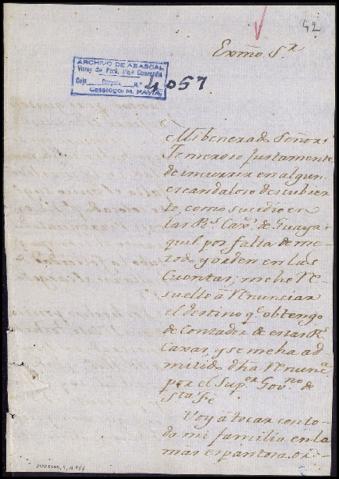 42
Exmo Sr
ARCHIVO DE ABASCAL
Virrey de Perú. Marqs. Concordia
Caja Carpeta N.º
Catálogo: M. PAVIA
4057
Mi venerado Señor:
Temeroso justamente
de incurrir en algun
escandaloso descubier-
to, como sucedio en
las Rs. Caxs. de Guaya-
quil por falta de me-
todo, y orden en las
Cuentas, me he re-
suelto à renunciar
el destino qe. obtengo
de Contador de estas Rs.
Caxas, y se me ha ad-
mitido dha renunca.
por el Supor. Govno. de
Sta. Fé
Voy à tocar con to-
da mi familia en la
mas espantosa or-